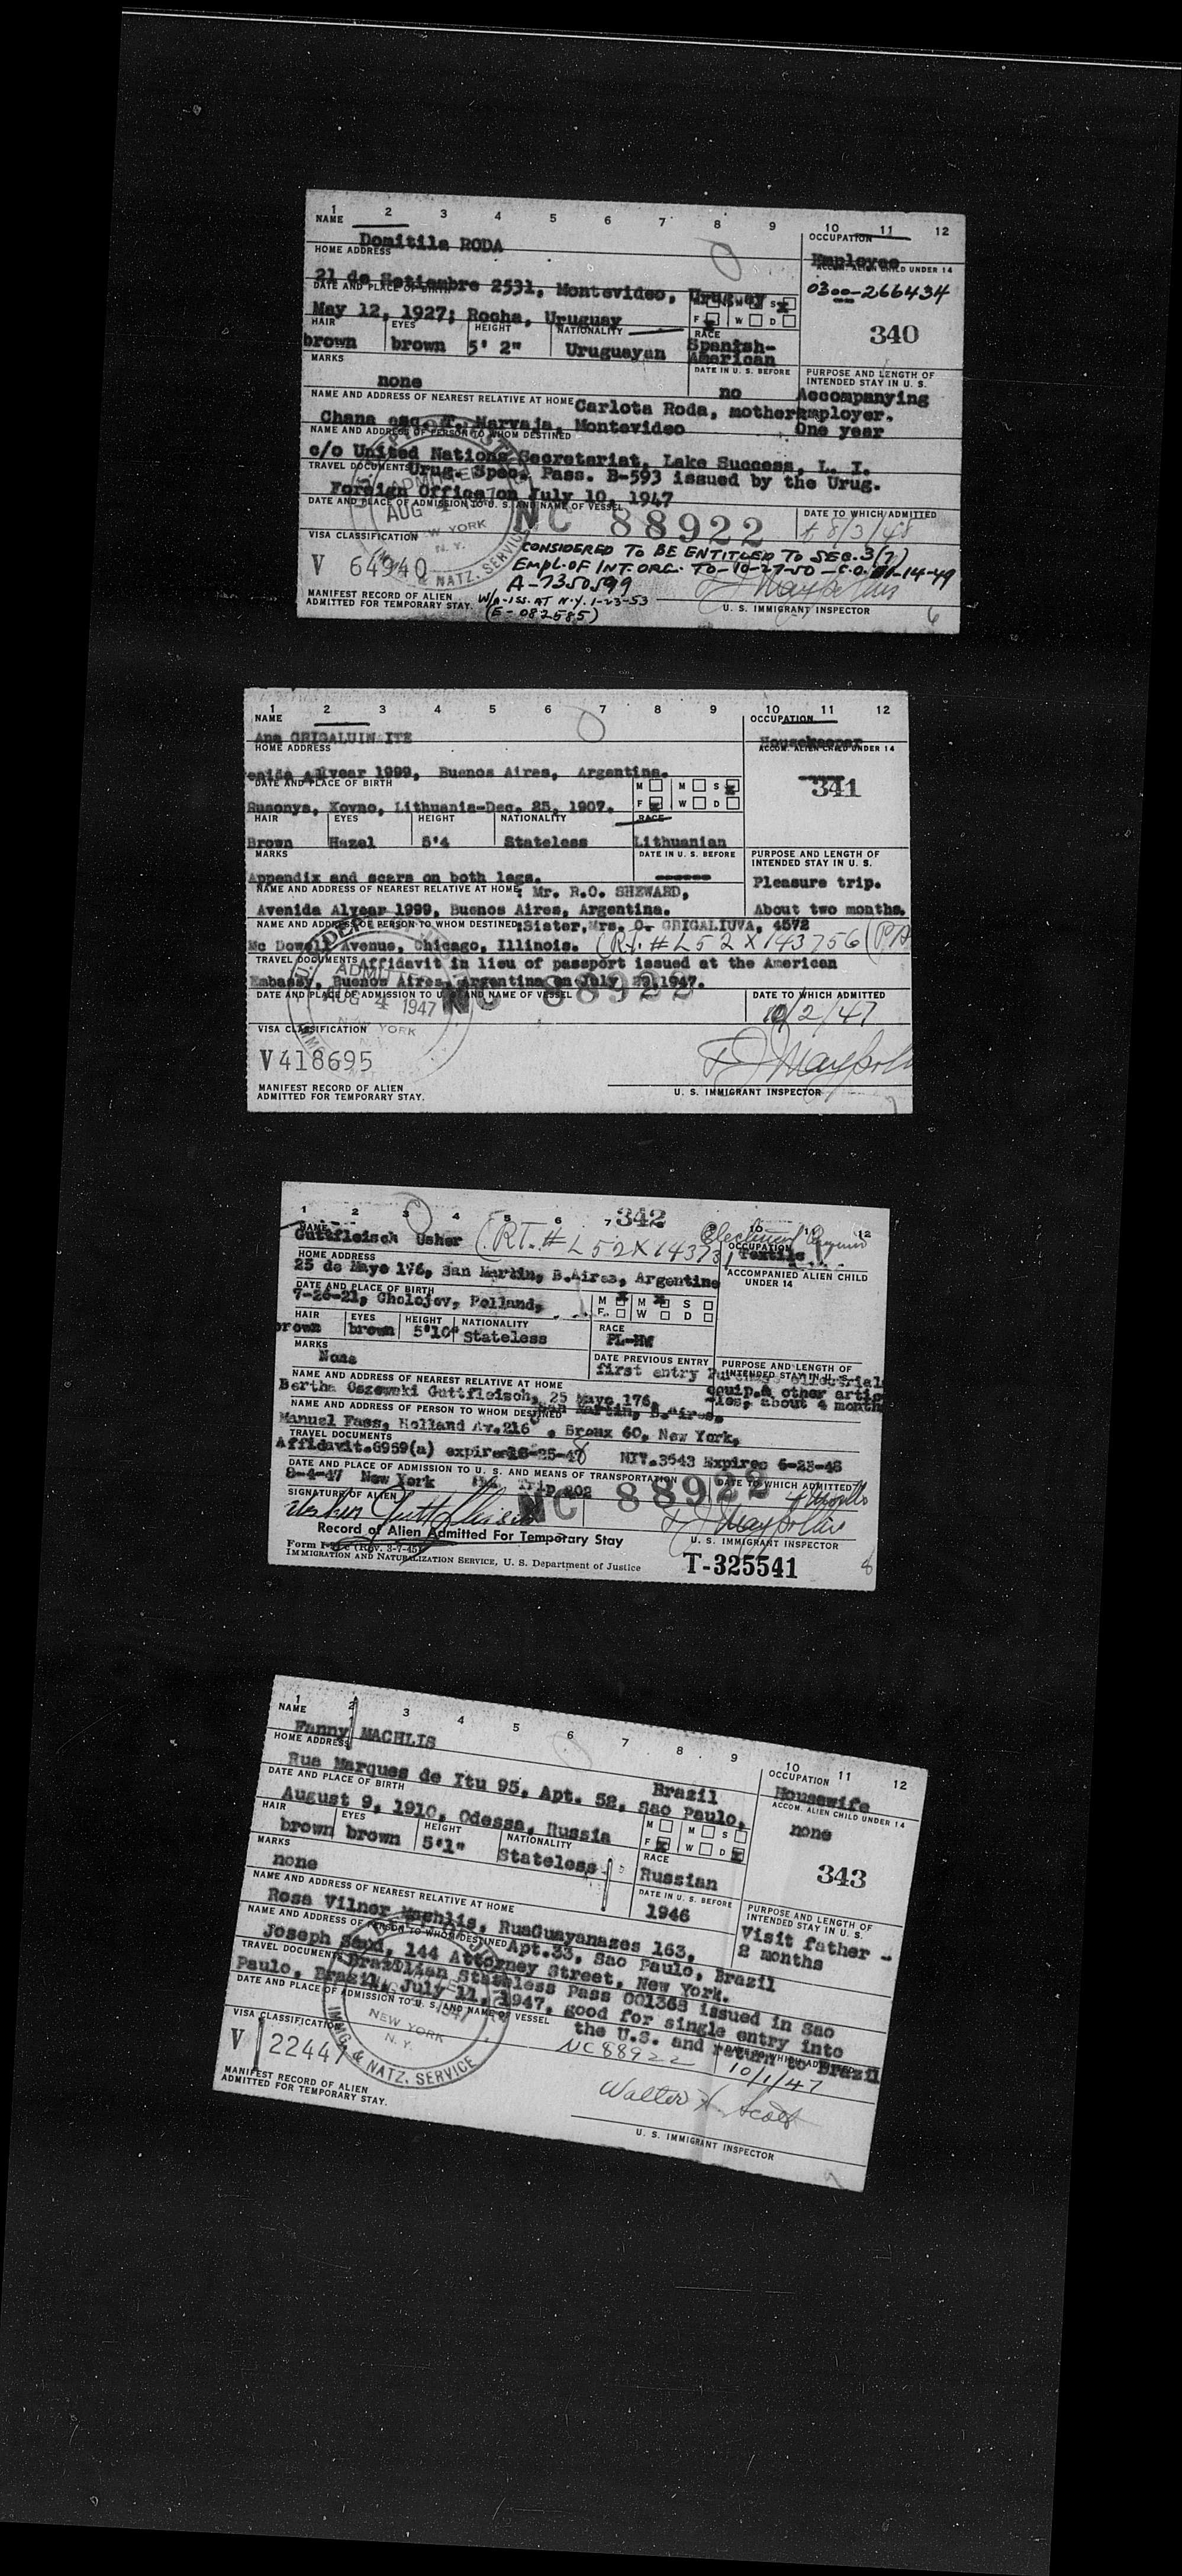 1 2 3 4 5 6 7 8 9 10 11 12
NAME OCCUPATION
Domitila RODA Employee
HOME ADDRESS ACCOM. ALIEN CHILD UNDER 14
21 de Setiembre 2531, Montevideo, Uruguay 0300-266434
DATE AND PLACE OF BIRTH M M S X
May 12, 1927; Rocha, Uruguay F X W D
340
HAIR EYES HEIGHT NATIONALITY RACE
brown brown 5' 2" Uruguayan Spanish-American
MARKS DATE IN U. S. BEFORE PURPOSE AND LENGTH OF INTENDED STAY IN U. S.
none no Accompanying
NAME AND ADDRESS OF NEAREST RELATIVE AT HOME Carlota Roda, mother employer.
Chana esq. T. Narvaja, Montevideo One year
NAME AND ADDRESS OF PERSON TO WHOM DESTINED
c/o United Nations Secretariat, Lake Success, L. I.
TRAVEL DOCUMENTS Urug. Spec. Pass. B-593 issued by the Urug.
Foreign Office on July 10, 1947
DATE AND PLACE OF ADMISSION TO U. S. AND NAME OF VESSEL DATE TO WHICH ADMITTED
ADMITTED AUG NEW YORK N. Y. & NATZ. SERVICE
NC 88922 8/3/48
VISA CLASSIFICATION CONSIDERED TO BE ENTITLED TO SEC. 3(7)
V 64940 EMPL. OF INT. ORG. TO-10-27-50-C.O. 11-14-49
A-7350599
MANIFEST RECORD OF ALIEN W/A-ISS. AT N.Y. 1-23-53
ADMITTED FOR TEMPORARY STAY. (E-082585) U. S. IMMIGRANT INSPECTOR
6
1 2 3 4 5 6 7 8 9 10 11 12
NAME OCCUPATION
Ana GRIGALUINAITE Housekeeper
HOME ADDRESS ACCOM. ALIEN CHILD UNDER 14
enida Alvear 1999, Buenos Aires, Argentina.
341
DATE AND PLACE OF BIRTH M M S X
Rusonys, Kovno, Lithuania-Dec. 25, 1907. F X W D
HAIR EYES HEIGHT NATIONALITY RACE
Brown Hazel 5'4 Stateless Lithuanian
MARKS DATE IN U. S. BEFORE PURPOSE AND LENGTH OF INTENDED STAY IN U. S.
Appendix and scars on both legs. Pleasure trip.
NAME AND ADDRESS OF NEAREST RELATIVE AT HOME: Mr. R.O. SHEWARD,
Avenida Alvear 1999, Buenos Aires, Argentina. About two months.
NAME AND ADDRESS OF PERSON TO WHOM DESTINED: Sister, Mrs. O. GRIGALIUVA, 4572
Mc Dowell Avenue, Chicago, Illinois. (RT. # L52X143756 (P/A
TRAVEL DOCUMENTS Affidavit in lieu of passport issued at the American
Embassy, Buenos Aires, Argentina on July 29, 1947.
DATE AND PLACE OF ADMISSION TO U. S. AND NAME OF VESSEL DATE TO WHICH ADMITTED
ADMITTED AUG 4 1947 NEW YORK
NC 88922 10/2/47
VISA CLASSIFICATION
V418695
MANIFEST RECORD OF ALIEN
ADMITTED FOR TEMPORARY STAY. U. S. IMMIGRANT INSPECTOR
1 2 3 4 5 6 7 342 10 11 12
NAME OCCUPATION
Guttfleisch Usher (RT. # L52X14373 Textile
HOME ADDRESS ACCOMPANIED ALIEN CHILD UNDER 14
25 de Mayo 176, San Martin, B.Aires, Argentine
DATE AND PLACE OF BIRTH M X M X S
7-26-21, Gholojov, Polland, F W D
HAIR EYES HEIGHT NATIONALITY RACE
brown brown 5'10" Stateless PL-HW
MARKS DATE PREVIOUS ENTRY PURPOSE AND LENGTH OF INTENDED STAY IN U. S.
None first entry
NAME AND ADDRESS OF NEAREST RELATIVE AT HOME equip.& other artic
Bertha Oszewski Guttfleisch, 25 Mayo 176, -les, about 4 month
NAME AND ADDRESS OF PERSON TO WHOM DESTINED San Martin, B.Aires.
Manuel Fass, Holland Av.216 , Bronx 60, New York,
TRAVEL DOCUMENTS
Affidavit.G959(a) NIV.3543 Expires 6-23-48
DATE AND PLACE OF ADMISSION TO U. S. AND MEANS OF TRANSPORTATION DATE TO WHICH ADMITTED
8-4-47 New York Trip 202 NC 88922
SIGNATURE OF ALIEN
Usher Guttfleisch
Record of Alien Admitted For Temporary Stay U. S. IMMIGRANT INSPECTOR
(Rev. 3-7-45)
IMMIGRATION AND NATURALIZATION SERVICE, U. S. Department of Justice T-325541
8
1 2 3 4 5 6 7 8 9 10 11 12
NAME OCCUPATION
Fanny MACHLIS Housewife
HOME ADDRESS Brazil ACCOM. ALIEN CHILD UNDER 14
Rua Marques de Itu 95, Apt. 52, Sao Paulo, none
DATE AND PLACE OF BIRTH M M S
August 9, 1910, Odessa, Russia F X W D X
343
HAIR EYES HEIGHT NATIONALITY RACE
brown brown 5'1" Stateless Russian
MARKS DATE IN U. S. BEFORE PURPOSE AND LENGTH OF INTENDED STAY IN U. S.
none 1946 Visit father -
NAME AND ADDRESS OF NEAREST RELATIVE AT HOME 2 months
Rosa Vilner Machlis, RuaGuayanazes 163,
NAME AND ADDRESS OF PERSON TO WHOM DESTINED Apt.33, Sao Paulo, Brazil
Joseph Send, 144 Attorney Street, New York.
TRAVEL DOCUMENTS Brazilian Stateless Pass 001368 issued in Sao
Paulo, Brazil, July 11, 1947, good for single entry into
DATE AND PLACE OF ADMISSION TO U. S. AND NAME OF VESSEL the U.S. and return to Brazil
1947 NEW YORK N. Y. IMMIG. & NATZ. SERVICE
NC88922 10/1/47
VISA CLASSIFICATION
V 22447
Walter X. Scott
MANIFEST RECORD OF ALIEN
ADMITTED FOR TEMPORARY STAY. U. S. IMMIGRANT INSPECTOR